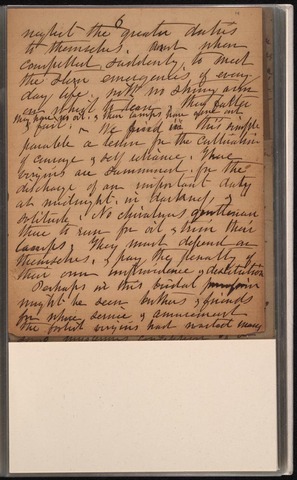 6
neglect the greater duties
to themselves. And when
compelled suddenly, to meet
the stern emergencies of every
day life, with no strong arm
on which to lean, they falter
they have no oil, & their lamps have gone out
& fail. We find in this simple
parable a lesson for the cultivation
of courage & self reliance. These
virgins are summoned for the
discharge of an important duty
at midnight, in darkness, &
solitude. No chivalrous gentleman
there to run for oil & trim their
lamps. They must depend on
themselves, & pay the penalty of
their own improvidence & destitution
Perhaps in this bridal procession
might be seen brothers & friends
for whose service & amusement
the foolish virgins had wasted many